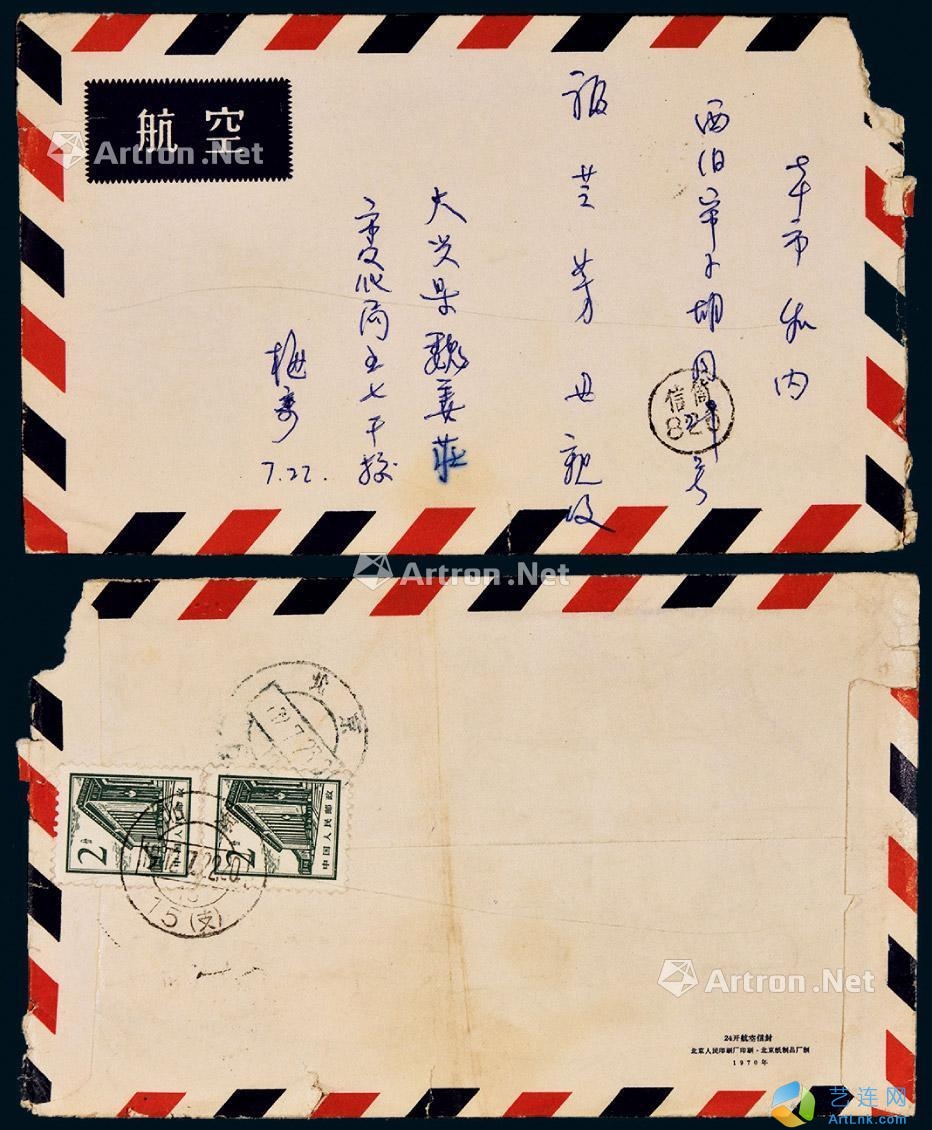 航空
本市 和内
西旧帘子胡同 号
福芝芳 母亲收
大兴县魏善庄
市文化局五七干校
7.22.
信筒
823
Artron.Net
Artron.Net
北京
2分
中国人民邮政
2分
中国人民邮政
15(支)
Artron.Net
24开航空信封
北京人民印刷厂印刷·北京纸制品厂制
1970年
艺连网
ArtLnk.com